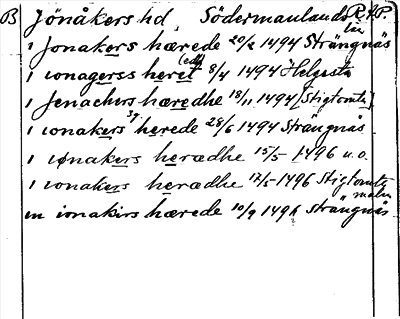 B Jönåkers hd, Södermanlands län R.A.P.
i Jonakers hærede 20/2 1494 Strängnäs
i ionagerss heret (edh) 8/4 1494 Helgesta
i Jenachers hæredhe 18/11 1494 [Stigtomta]
i ionakers herede 28/6 1494 Strängnäs
i iønakers herædhe 15/5 1496 u.o.
i ionakers herædhe 17/5 1496 Stigtomta
in ionakirs hærede 10/9 1496 Strängnäs